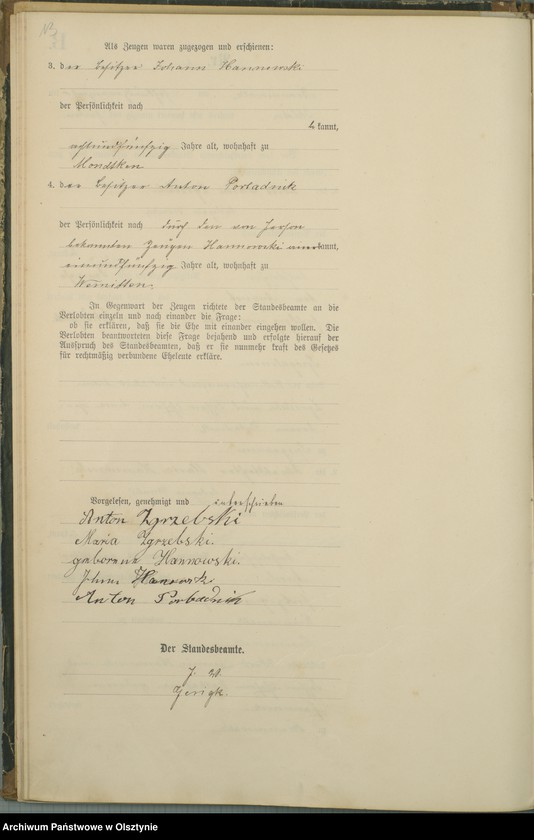 Als Zeugen waren zugezogen und erschienen:
3. der Besitzer Johann Hannowski
der Persönlichkeit nach
kannt,
achtundfünfzig Jahre alt, wohnhaft zu
Mondtken
4. der Besitzer Anton Porbadnik
der Persönlichkeit nach durch den von Person
bekannten Zeugen Hannowski anerkannt,
einundfünfzig Jahre alt, wohnhaft zu
Wemitten.
In Gegenwart der Zeugen richtete der Standesbeamte an die
Verlobten einzeln und nach einander die Frage:
ob sie erklären, daß sie die Ehe mit einander eingehen wollen. Die
Verlobten beantworteten diese Frage bejahend und erfolgte hierauf der
Ausspruch des Standesbeamten, daß er sie nunmehr kraft des Gesetzes
für rechtmäßig verbundene Eheleute erkläre.
Vorgelesen, genehmigt und unterschrieben
Anton Zgrzebski
Maria Zgrzebski.
geborene Hannowski.
Anton Porbadnik
Der Standesbeamte.
J. W.
Gerigk.
Archiwum Państwowe w Olsztynie